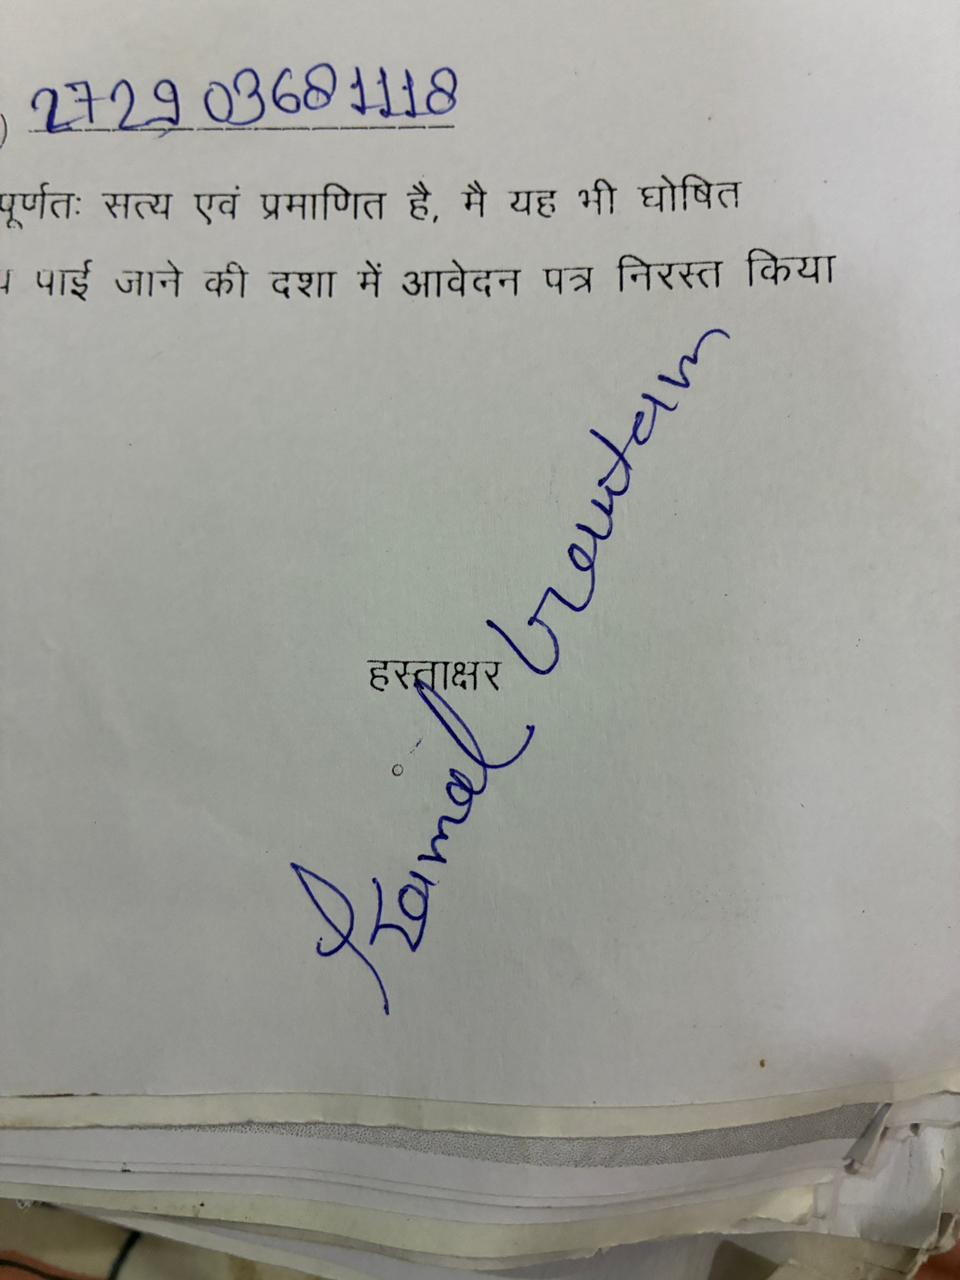 2729 03681118
पूर्णतः सत्य एवं प्रमाणित है, मै यह भी घोषित
पाई जाने की दशा में आवेदन पत्र निरस्त किया
हस्ताक्षर
Kamal Gautam